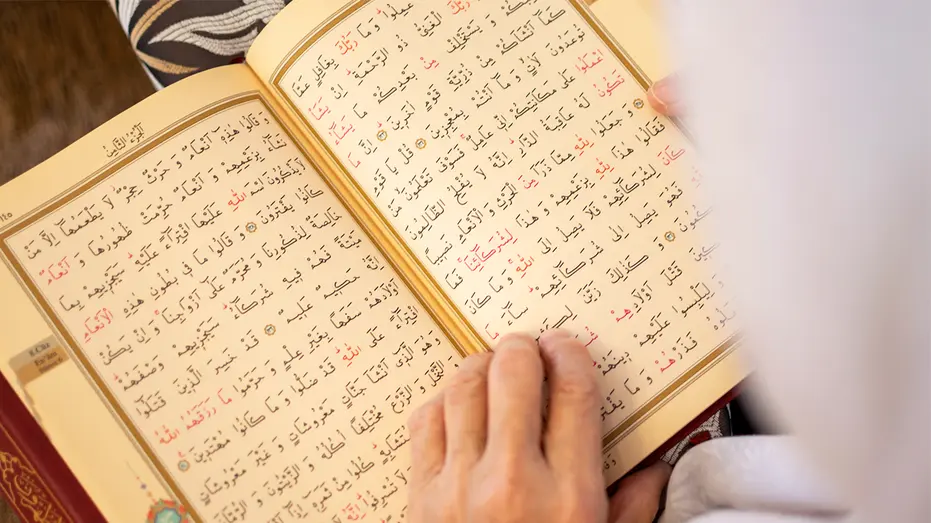 عَمِلُوا وَ مَا رَبُّكَ بِغَافِلٍ عَمَّا
رَبُّكَ الْغَنِيُّ ذُو الرَّحْمَةِ اِنْ يَشَأْ
وَ يَسْتَخْلِفْ مِنْ بَعْدِكُمْ مَا يَشَاءُ
كَمَا اَنْشَاَكُمْ مِنْ ذُرِّيَّةِ قَوْمٍ اٰخَرِينَ ﴿١٣٣﴾ اِنَّ مَا
تُوعَدُونَ لَاٰتٍ وَ مَا اَنْتُمْ بِمُعْجِزِينَ ﴿١٣٤﴾ قُلْ يَا قَوْمِ
اعْمَلُوا عَلٰى مَكَانَتِكُمْ اِنِّي عَامِلٌ فَسَوْفَ تَعْلَمُونَ مَنْ
تَكُونُ لَهُ عَاقِبَةُ الدَّارِ اِنَّهُ لَا يُفْلِحُ الظَّالِمُونَ
﴿١٣٥﴾ وَ جَعَلُوا لِلّٰهِ مِمَّا ذَرَاَ مِنَ الْحَرْثِ وَ الْاَنْعَامِ نَصِيبًا
فَقَالُوا هٰذَا لِلّٰهِ بِزَعْمِهِمْ وَ هٰذَا لِشُرَكَائِنَا فَمَا
كَانَ لِشُرَكَائِهِمْ فَلَا يَصِلُ اِلَى اللّٰهِ وَ مَا كَانَ
فَهُوَ يَصِلُ اِلٰى شُرَكَائِهِمْ سَاءَ مَا
﴿١٣٦﴾ وَ كَذٰلِكَ زَيَّنَ
قَتْلَ اَوْلَادِهِمْ
وَ لِيَلْبِسُوا عَلَيْهِمْ دِينَهُمْ
فَذَرْهُمْ وَ مَا
اَلْجُزْءُ الثَّامِنُ
١٤٥
وَ قَالُوا هٰذِهِ اَنْعَامٌ وَ حَرْثٌ حِجْرٌ لَا يَطْعَمُهَا اِلَّا مَنْ
نَشَاءُ بِزَعْمِهِمْ وَ اَنْعَامٌ حُرِّمَتْ ظُهُورُهَا وَ اَنْعَامٌ
لَا يَذْكُرُونَ اسْمَ اللّٰهِ عَلَيْهَا افْتِرَاءً عَلَيْهِ سَيَجْزِيهِمْ بِمَا
كَانُوا يَفْتَرُونَ ﴿١٣٨﴾ وَ قَالُوا مَا فِي بُطُونِ هٰذِهِ الْاَنْعَامِ
خَالِصَةٌ لِذُكُورِنَا وَ مُحَرَّمٌ عَلٰى اَزْوَاجِنَا وَ اِنْ يَكُنْ
مَيْتَةً فَهُمْ فِيهِ شُرَكَاءُ سَيَجْزِيهِمْ وَصْفَهُمْ
اِنَّهُ حَكِيمٌ عَلِيمٌ ﴿١٣٩﴾ قَدْ خَسِرَ الَّذِينَ قَتَلُوا
اَوْلَادَهُمْ سَفَهًا بِغَيْرِ عِلْمٍ وَ حَرَّمُوا مَا رَزَقَهُمُ اللّٰهُ
افْتِرَاءً عَلَى اللّٰهِ قَدْ ضَلُّوا وَ مَا كَانُوا مُهْتَدِينَ ﴿١٤٠﴾
وَ هُوَ الَّذِي اَنْشَاَ جَنَّاتٍ مَعْرُوشَاتٍ وَ غَيْرَ مَعْرُوشَاتٍ
النَّخْلَ وَ الزَّرْعَ مُخْتَلِفًا اُكُلُهُ وَ الزَّيْتُونَ وَ الرُّمَّانَ
كُلُوا مِنْ ثَمَرِهِ اِذَا
تُسْرِفُوا اِنَّهُ